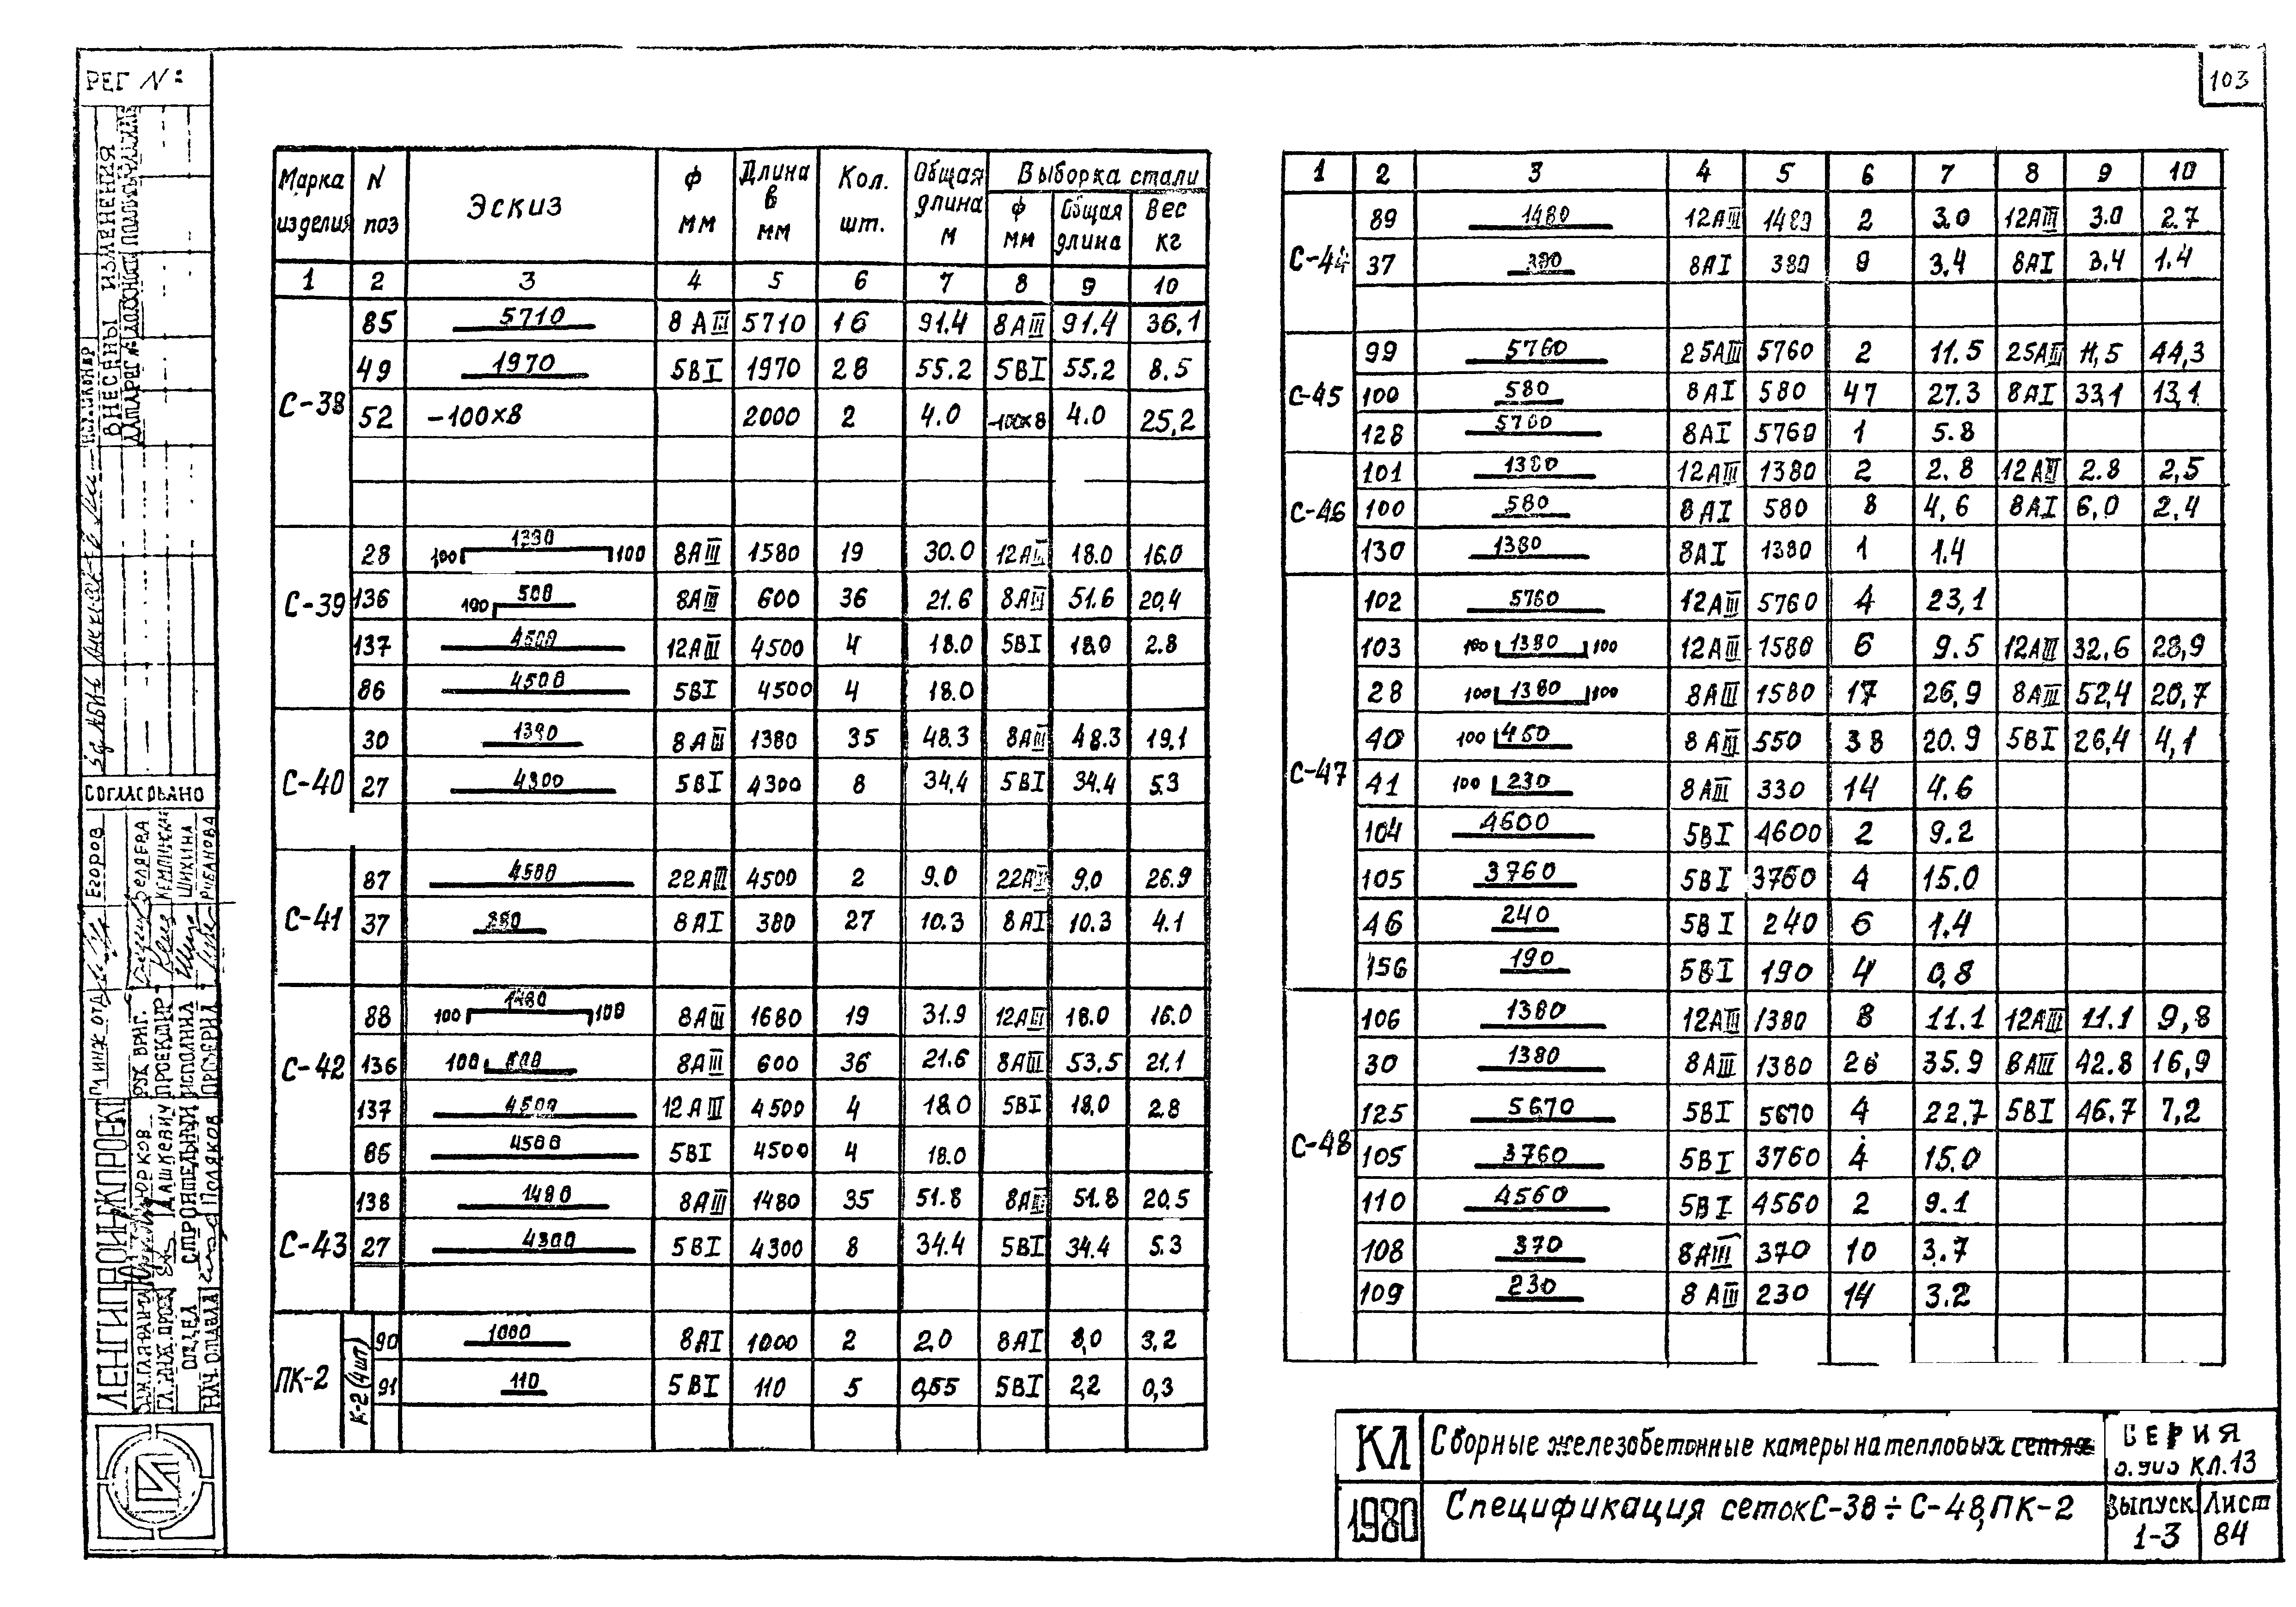 103
РЕГ №:
ВНЕСЕНЫ ИЗМЕНЕНИЯ
СОГЛАСОВАНО
ЕГОРОВ
БЕЛЯЕВА
ШИХИНА
РУБАНОВА
ЛЕНГИПРОИНЖПРОЕКТ
РУК. БРИГ.
ПРОЕКТИР.
ИСПОЛНИЛ
ПРОВЕРИЛ
ДАШКЕВИЧ
ОТДЕЛ СТРОИТЕЛЬНЫЙ
НАЧ. ОТДЕЛА
ПОЛЯКОВ
Марка изделия | N поз | Эскиз | ф мм | Длина в мм | Кол. шт. | Общая длина м | Выборка стали
ф мм | Общая длина | Вес кг
1 2 3 4 5 6 7 8 9 10
С-38
85 5710 8АIII 5710 16 91.4 8АIII 91.4 36,1
49 1970 5ВI 1970 28 55.2 5ВI 55.2 8.5
52 -100×8 2000 2 4.0 -100×8 4.0 25,2
С-39
28 100 1380 100 8АIII 1580 19 30.0 12АIII 18.0 16.0
136 100 500 8АIII 600 36 21.6 8АIII 51.6 20,4
137 4500 12АIII 4500 4 18.0 5ВI 18.0 2.8
86 4500 5ВI 4500 4 18.0
С-40
30 1380 8АIII 1380 35 48.3 8АIII 48.3 19,1
27 4300 5ВI 4300 8 34,4 5ВI 34.4 5.3
С-41
87 4500 22АIII 4500 2 9.0 22АIII 9,0 26.9
37 380 8АI 380 27 10.3 8АI 10.3 4.1
С-42
88 100 1480 100 8АIII 1680 19 31.9 12АIII 18.0 16.0
136 100 500 8АIII 600 36 21.6 8АIII 53.5 21,1
137 4500 12АIII 4500 4 18.0 5ВI 18.0 2.8
86 4500 5ВI 4500 4 18.0
С-43
138 1480 8АIII 1480 35 51.8 8АIII 51.8 20,5
27 4300 5ВI 4300 8 34.4 5ВI 34.4 5.3
ПК-2 К-2 (4шт)
90 1000 8АI 1000 2 2,0 8АI 8,0 3,2
91 110 5ВI 110 5 0,55 5ВI 2,2 0,3
1 2 3 4 5 6 7 8 9 10
С-44
89 1480 12АIII 1480 2 3.0 12АIII 3.0 2.7
37 380 8АI 380 9 3.4 8АI 3.4 1.4
С-45
99 5760 25АIII 5760 2 11.5 25АIII 11,5 44,3
100 580 8АI 580 47 27.3 8АI 33,1 13,1
128 5760 8АI 5760 1 5.8
С-46
101 1380 12АIII 1380 2 2.8 12АIII 2.8 2,5
100 580 8АI 580 8 4,6 8АI 6,0 2,4
130 1380 8АI 1380 1 1.4
С-47
102 5760 12АIII 5760 4 23,1
103 100 1380 100 12АIII 1580 6 9.5 12АIII 32,6 28,9
28 100 1380 100 8АIII 1580 17 26,9 8АIII 52,4 20,7
40 100 450 8АIII 550 38 20.9 5ВI 26,4 4,1
41 100 230 8АIII 330 14 4.6
104 4600 5ВI 4600 2 9.2
105 3760 5ВI 3760 4 15.0
46 240 5ВI 240 6 1.4
156 190 5ВI 190 4 0,8
С-48
106 1380 12АIII 1380 8 11.1 12АIII 11.1 9,8
30 1380 8АIII 1380 26 35.9 8АIII 42.8 16,9
125 5670 5ВI 5670 4 22,7 5ВI 46.7 7,2
105 3760 5ВI 3760 4 15.0
110 4560 5ВI 4560 2 9.1
108 370 8АIII 370 10 3.7
109 230 8АIII 230 14 3.2
КЛ
1980
Сборные железобетонные камеры на тепловых сетях
СЕРИЯ
КЛ.13
Спецификация сеток С-38÷С-48, ПК-2
Выпуск
1-3
Лист
84